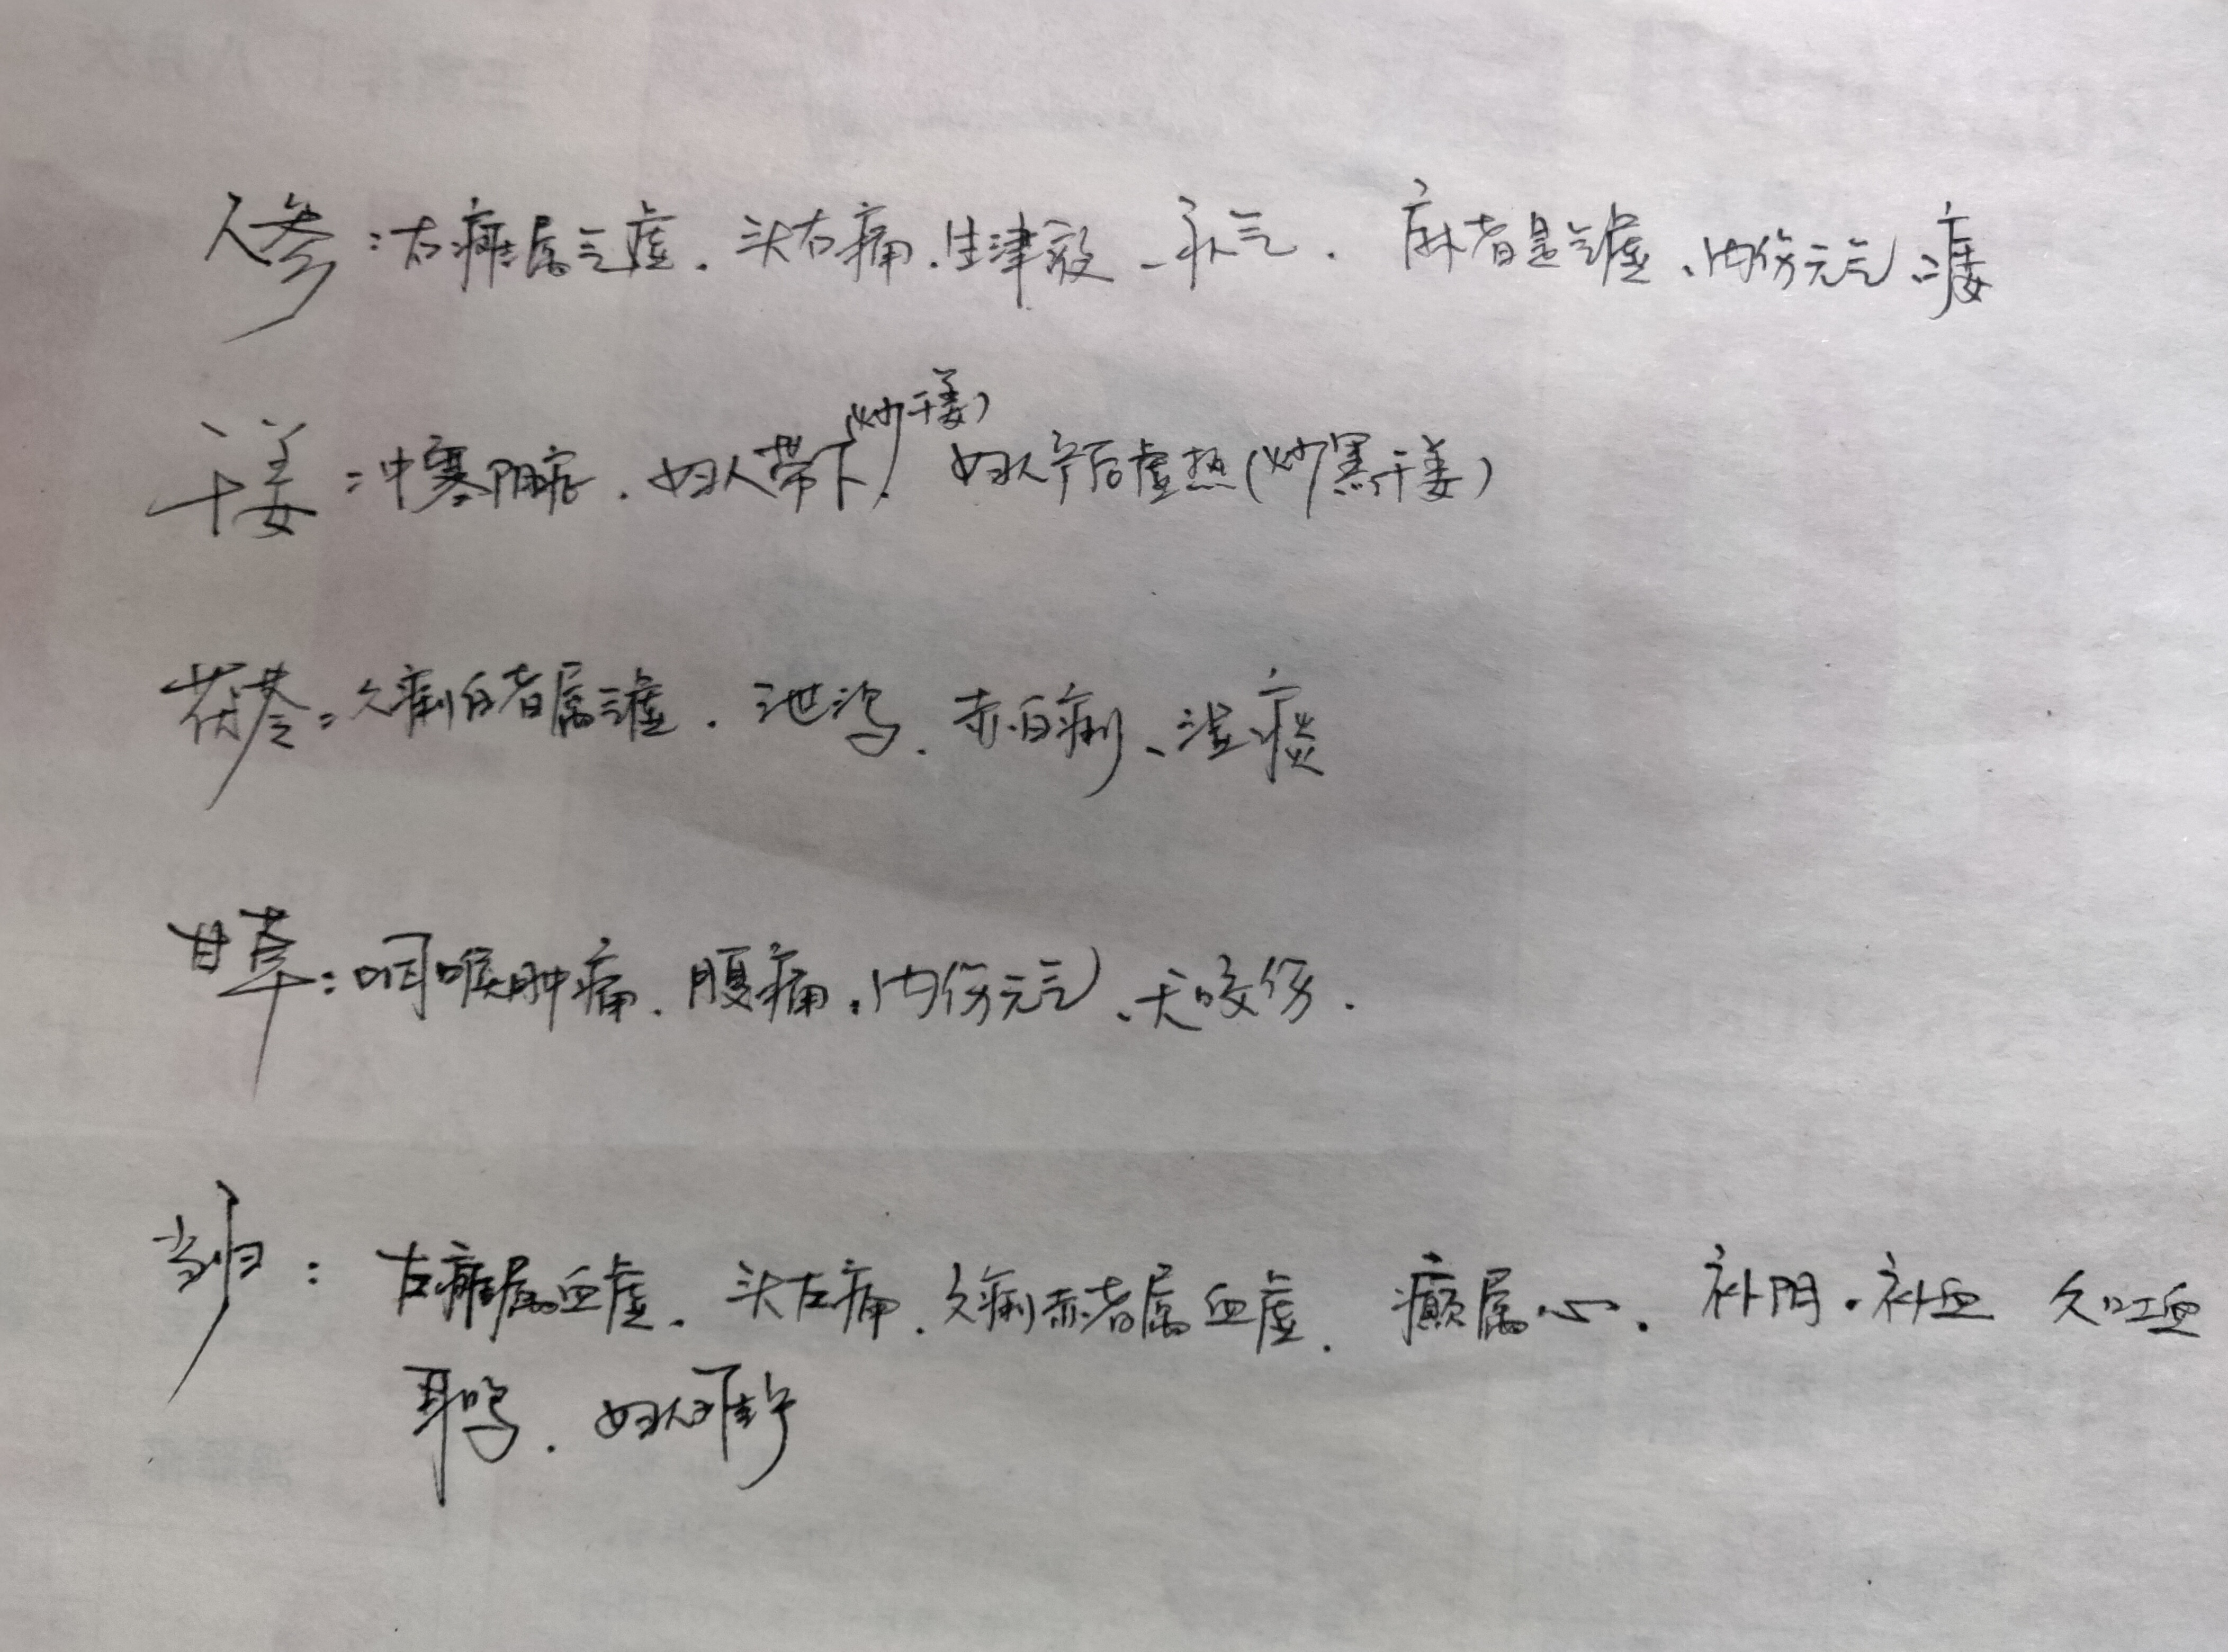 人参：右瘫属气虚．头右痛．生津液、补气．麻者是气虚、内伤元气、痿
干姜：中寒阴症．妇人带下(炒干姜)．妇人产后虚热(炒黑干姜)
茯苓：久痢白者属气虚．泄泻．赤白痢、湿痰
甘草：咽喉肿痛．腹痛．内伤元气、犬咬伤．
当归：左瘫属血虚．头左痛．久痢赤者属血虚．癫属心．补阴．补血 久吐血
耳鸣．妇人难产